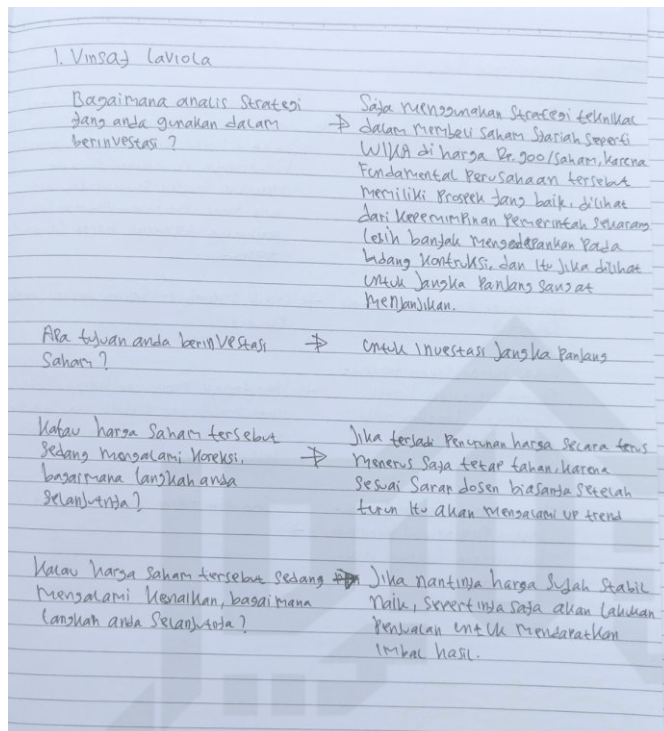 1. Vinsay Laviola
Bagaimana analis Strategi
yang anda gunakan dalam
berinvestasi ?
→ Saya menggunakan Strategi teknikal
dalam membeli saham Syariah Seperti
WIKA di harga Rp. 900/saham, karena
Fundamental Perusahaan tersebut
memiliki Prospek yang baik, dilihat
dari kepemimpinan Pemerintah Sekarang
lebih banyak mengedepankan Pada
bidang kontruksi, dan itu Jika dilihat
untuk Jangka Panjang Sangat
menjanjikan.
Apa tujuan anda berinvestasi
Saham ?
→ untuk Investasi Jangka Panjang
Kalau harga Saham tersebut
Sedang mengalami Koreksi,
bagaimana langkah anda
Selanjutnya ?
→ Jika terjadi Penurunan harga Secara terus
menerus Saya tetap tahan, karena
Sesuai Saran dosen biasanya Setelah
turun itu akan mengalami up trend
Kalau harga Saham tersebut Sedang
mengalami Kenaikan, bagaimana
langkah anda Selanjutnya ?
→ Jika nantinya harga Sudah Stabil
naik, Sepertinya Saya akan lakukan
Penjualan untuk mendapatkan
imbal hasil.